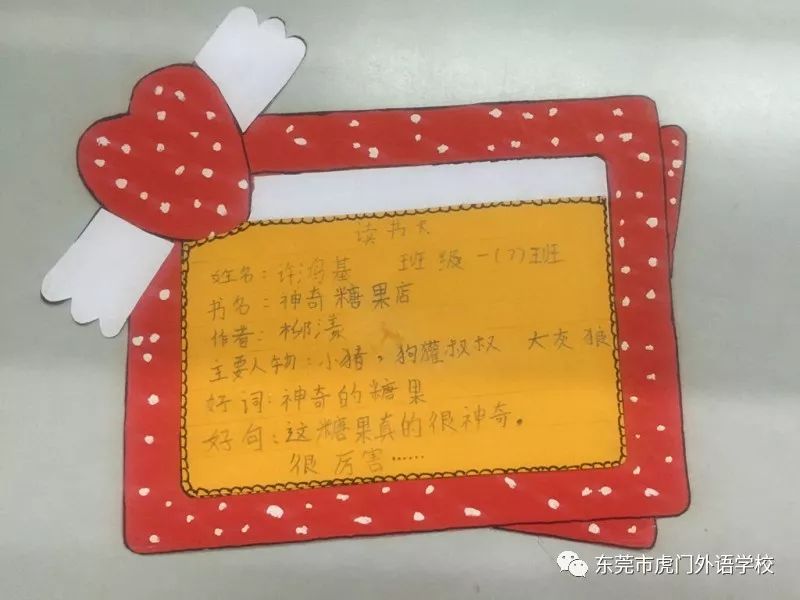 读书卡
姓名：许鸿基 班级 一(7)班
书名：神奇糖果店
作者：柳漾
主要人物：小猪，狗獾叔叔 大灰狼
好词：神奇的糖果
好句：这糖果真的很神奇。
很厉害……
东莞市虎门外语学校